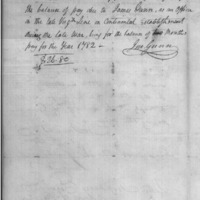 the balance of pay due to James Gunn, as an Officer
in the late Virgª Line on Continental Establishment
during the late War, being for the balance of two Months
pay for the Year 1782 -
Jas Gunn
$ 26.80